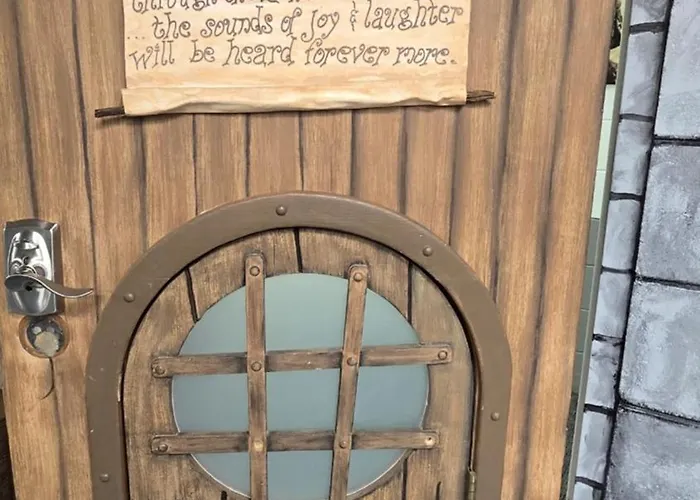 ...the sounds of joy & laughter
will be heard forever more.